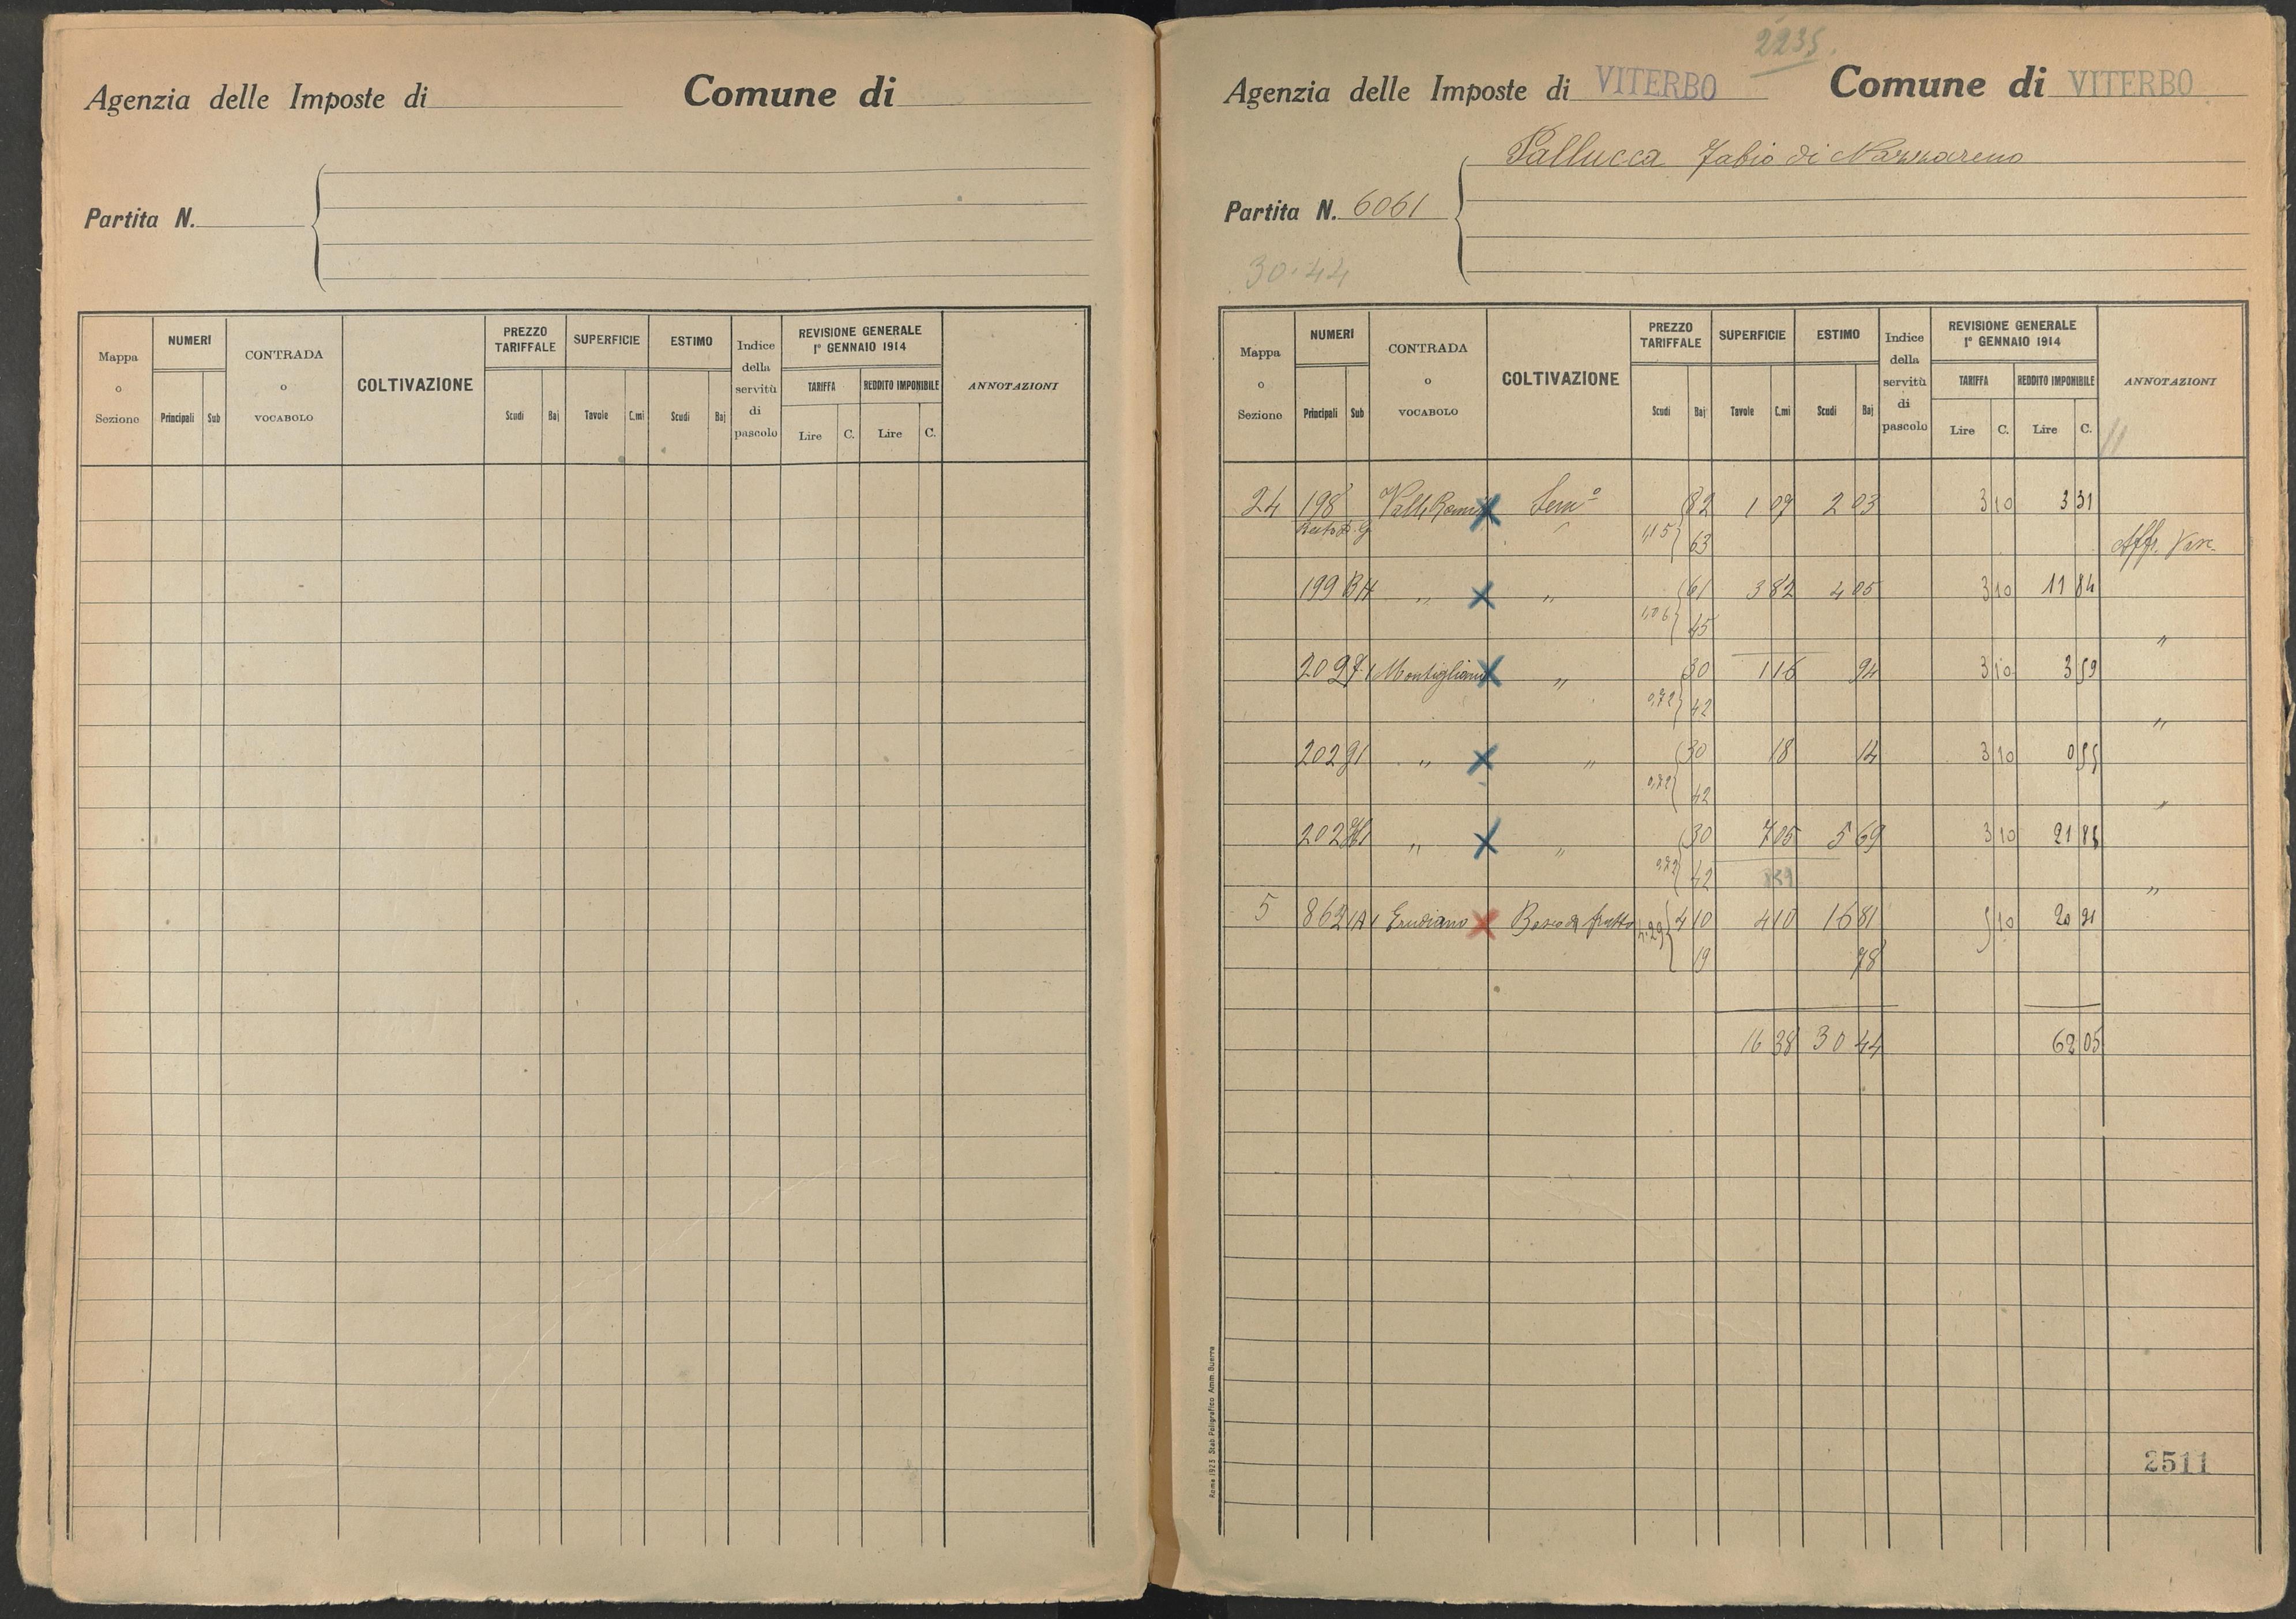 Agenzia delle Imposte di Comune di
Partita N.
Mappa o Sezione NUMERI CONTRADA o VOCABOLO COLTIVAZIONE PREZZO TARIFFALE SUPERFICIE ESTIMO Indice della servitù di pascolo REVISIONE GENERALE 1° GENNAIO 1914 ANNOTAZIONI
TARIFFA REDDITO IMPONIBILE
Principali Sub Scudi Baj Tavole C.mi Scudi Baj Lire C. Lire C.
2235.
Agenzia delle Imposte di VITERBO Comune di VITERBO
Pallucca Fabio di Nazzareno
Partita N. 6061
30.44
Mappa o Sezione NUMERI CONTRADA o VOCABOLO COLTIVAZIONE PREZZO TARIFFALE SUPERFICIE ESTIMO Indice della servitù di pascolo REVISIONE GENERALE 1° GENNAIO 1914 ANNOTAZIONI
TARIFFA REDDITO IMPONIBILE
Principali Sub Scudi Baj Tavole C.mi Scudi Baj Lire C. Lire C.
24 198 Semº 82 1 09 2 03 3 10 3 31
1,15 63 Aff.
199 〃 〃 61 3 82 4 05 3 10 11 84
1,06 45 〃
〃 30 1 16 94 3 10 3 59
0,72 42 〃
202 〃 〃 30 18 14 3 10 0 55
0,72 42 〃
202 〃 〃 30 7 05 5 69 3 10 21 85
0,72 42 〃
5 862 Bosco da frutto 4.29 4 10 4 10 16 81 5 10 20 91
19 78
16 38 30 44 62 05
2511
Roma 1925 Stab. Poligrafico Amm. Guerra